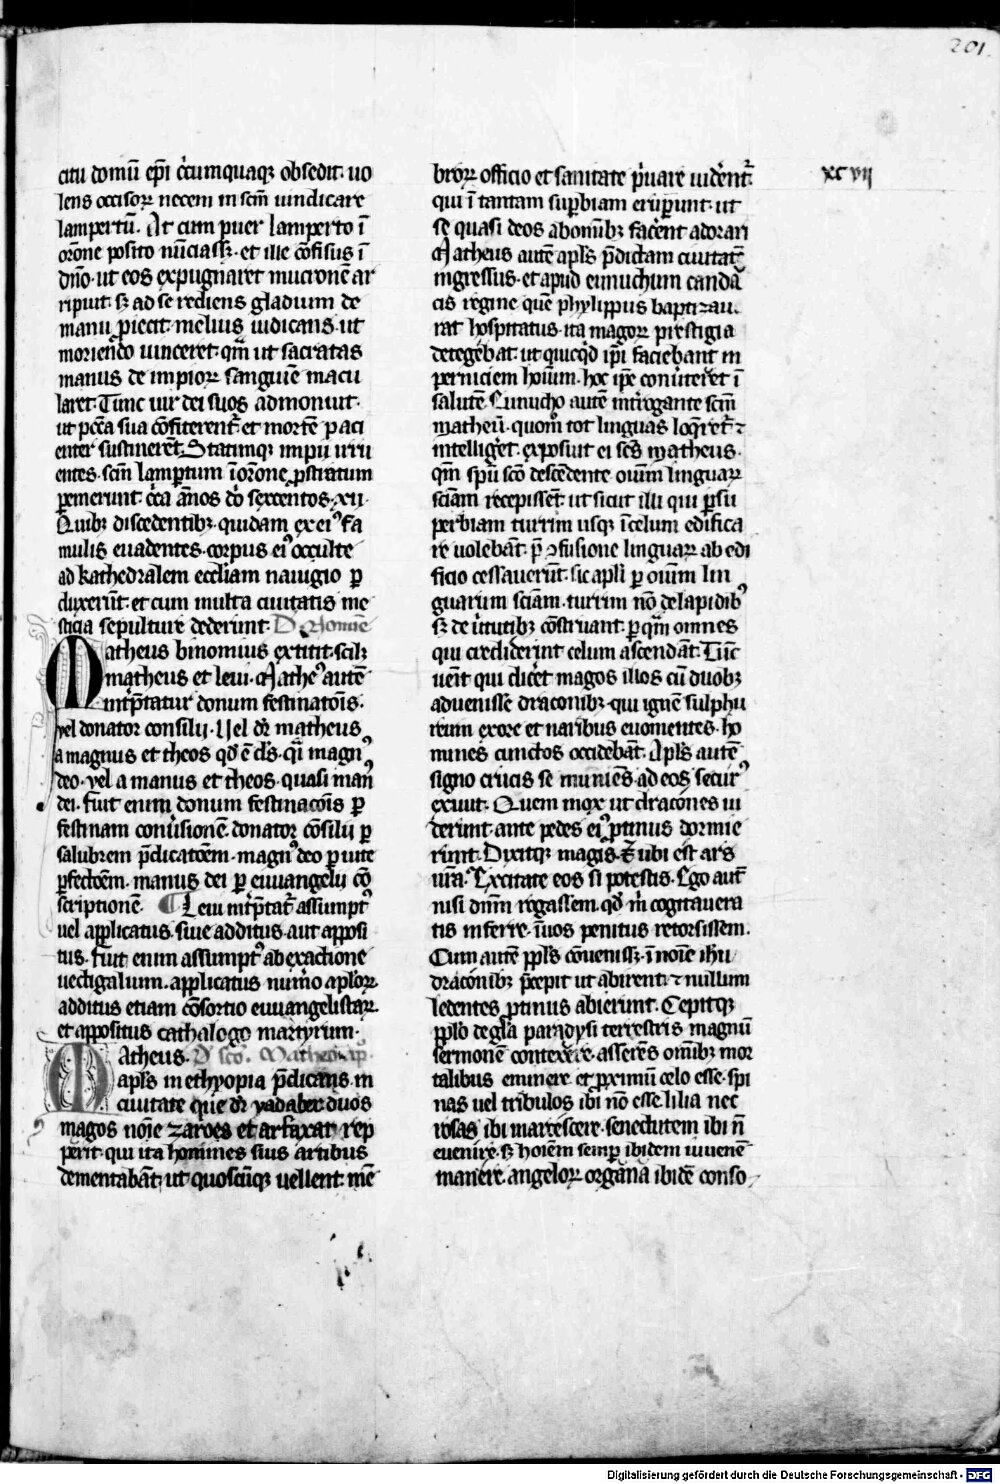 201
citu domū ep̄i circumquaqꝫ obsedit· uo
lens occisoꝝ necem in sc̄m uindicare
lampertū. At cum puer lamperto ī
or̄one posito nūciassꝫ· et ille cōfisus ī
dn̄o· ut eos expugnaret mucronē ar
ripiut· sꝫ ad se rediens gladium de
manu proiecit· melius iudicans ut
moriendo uinceret· qm̄ ut sacratas
manus de impioꝝ sanguīe macu
laret· Tunc uir dei suos admonuit·
ut pccā sua cōfiterent̄· et mortē paci
enter sustinerēt· Statimqꝫ impii irru
entes· sc̄m lampertum ī or̄one prostratum
peremerunt· circa ānos dō sexcentos· xii·
Quibꝫ discedentibꝫ· quidam ex eiꝰ fa
mulis euadentes· corpus eiꝰ occulte
ad kathedralem eccl̄iam nauigio p̱
duxerūt· et cum multa ciuitatis me
sticia sepulture dederunt· De nomīe
Matheus binomius extitit· scilꝫ
matheus et leui· Matheꝰ autē
int̄p̄tatur donum festinatōis·
uel donator consilij· Uel dr̄ matheus
a magnus et theos qd̄ ē ds̄· qī magnꝰ
deo· uel a manus et theos· quasi manꝰ
dei· fuit enim donum festinacōis p̱
festinam conūsionē· donator cōsilij p̱
salubrem p̄dicatōem· magnꝰ deo p̱ uite
p̱fectōem· manus dei p̱ euuangelij cō
scriptionē· ¶ Leui int̄p̄tat̄ assumptꝰ
uel applicatus· siue additus· aut apposi
tus· fuit enim assumptꝰ ab exactione
uectigalium· applicatus nūo apl̄oꝝ·
additus etiam cōsortio euuangelistaꝝ·
et appositus cathalogo martyrum·
Matheus· De sc̄o· Matheo ap̄·
apl̄s in ethyopia p̄dicans· in
ciuitate que dr̄ yadaber duos
magos noīe zaroes et arfaxat rep
perit· qui ita homines suis artibus
dementabāt· ut quoscūqꝫ uellent· mē
broꝝ officio et sanitate p̄uare uidēt̄·
qui ī tantam sup̱biam erup̱unt· ut
se quasi deos ab omībꝫ facēnt adorari
Matheus autē apl̄s p̄dictam ciuitatē
ingressus· et apud eunuchum canda
cis regine quē phylippus baptizau
rat hospitatus· ita magoꝝ prestigia
detegebat· ut quicqd̄ ip̄i faciebant in
perniciem hoīum· hoc ip̄e conūteret ī
salutē· Eunucho autē int̄rogante sc̄m
matheū· quom̄ tot linguas loq̄ret̄ ⁊
intelligēt· exposuit ei sc̄s matheus·
qm̄ sp̄u sc̄o descēdente oīum linguaꝝ
sciam recepissēt· ut sicut illi qui p̱ su
perbiam turrim usqꝫ ī celum edifica
re uolebāt· p̱ ꝯfusione linguaꝝ ab edi
ficio cessauerūt· sic apl̄i p̱ oīum lin
guarum sciam· turrim nō de lapidibꝰ
sꝫ de ūtutibꝫ cōstruant· p̱ quā omnes
qui crediderint celum ascendāt· Tūc
uēit qui dicēt magos illos cū duobꝫ
aduenisse draconibꝫ· qui ignē sulphu
reum ex ore et naribus euomentes· ho
mines cunctos occidebāt· Apl̄s autē
signo crucis se muniēs· ad eos securꝰ
exiuit· Quem mox ut dracones ui
derunt· ante pedes eiꝰ protinus dormie
runt· Dixitqꝫ magis· Et ubi est ars
ur̄a· Excitate eos si potestis· Ego aut̄
nisi dnm̄ rogassem· qd̄ m̄ cogitauera
tis inferre· ī uos penitus retorsissem·
Cum autē ppl̄s cōuenissꝫ· ī noīe ihū
draconibꝫ p̄cepit ut abirent· ⁊ nullum
ledentes protinus abierunt· Cepitqꝫ
ppl̄o de gl̄a paradysi terrestris magnū
sermonē contexere· asserēs omībꝫ mor
talibus eminere· et proximū celo esse· spi
nas uel tribulos ibi nō esse· lilia nec
rosas ibi marcescere· senectutem ibi n̄
euenire· sꝫ hoīem semp̱ ibidem iuuenē
manere· angeloꝝ organa ibidē conso
xcvii
Digitalisierung gefördert durch die Deutsche Forschungsgemeinschaft - DFG